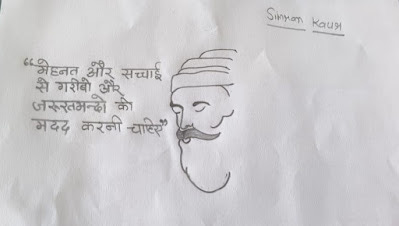 Simran Kaur
“मेहनत और सच्चाई
से गरीबो और
जरुरतमन्दो की
मदद करनी चाहिए”